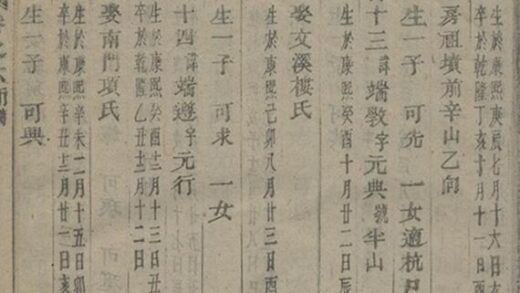 生於康熙庚辰七月十六日
卒於乾隆丁亥十月十一日酉
房祖墳前辛山乙向
生一子 可先 一女適杭
十三 諱端敎字元典號半山
生於康熙癸酉十月廿二日辰
娶文溪樓氏
生於康熙己卯八月廿三日酉
生一子 可求 一女
十四 諱端遵字元行
生於康熙癸酉十二月十三日丑
卒於乾隆乙丑十二月十二日
娶南門項氏
生於康熙辛未二月十五日卯
卒於康熙辛丑十二月廿一日亥
生一子 可興